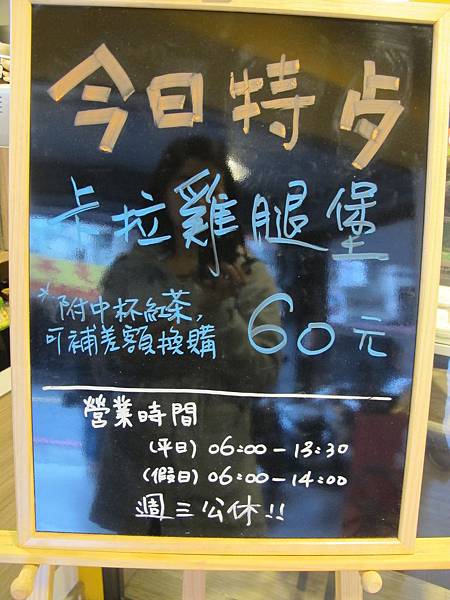 今日特点
卡拉雞腿堡
*附中杯紅茶,
可補差額換購 60元
營業時間
(平日) 06:00-13:30
(假日) 06:00-14:00
週三公休!!